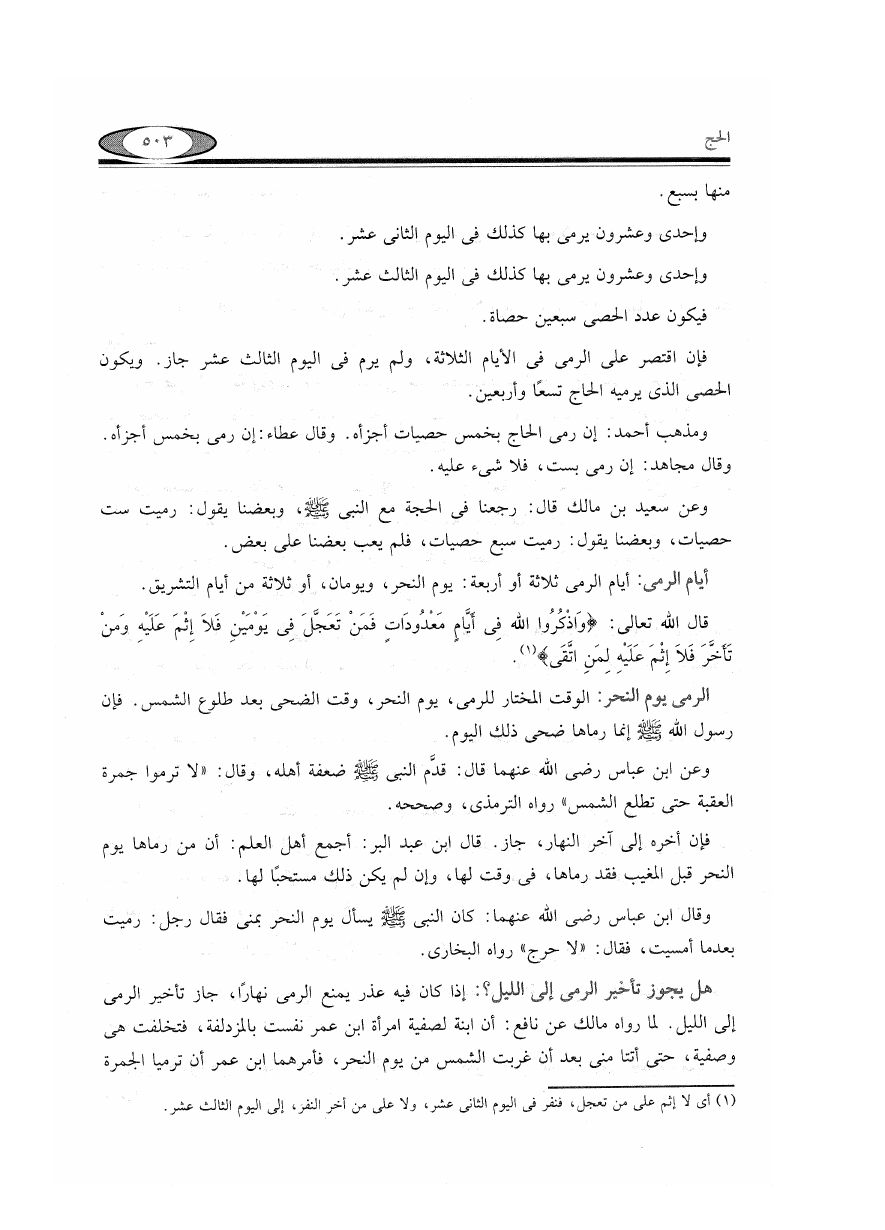 الحج
٥٠٣
منها بسبع.
وإحدى وعشرون يرمى بها كذلك فى اليوم الثانى عشر.
وإحدى وعشرون يرمى بها كذلك فى اليوم الثالث عشر.
فيكون عدد الحصى سبعين حصاة.
فإن اقتصر على الرمى فى الأيام الثلاثة، ولم يرم فى اليوم الثالث عشر جاز. ويكون
الحصى الذى يرميه الحاج تسعًا وأربعين.
ومذهب أحمد: إن رمى الحاج بخمس حصيات أجزأه. وقال عطاء:إن رمى بخمس أجزأه.
وقال مجاهد: إن رمى بست، فلا شىء عليه.
وعن سعيد بن مالك قال: رجعنا فى الحجة مع النبى ﷺ، وبعضنا يقول: رميت ست
حصيات، وبعضنا يقول: رميت سبع حصيات، فلم يعب بعضنا على بعض.
أيام الرمى: أيام الرمى ثلاثة أو أربعة: يوم النحر، ويومان، أو ثلاثة من أيام التشريق.
قال الله تعالى: ﴿وَاذْكُرُوا الله فِى أَيَّامٍ مَعْدُودَاتٍ فَمَنْ تَعَجَّلَ فِى يَوْمَيْنِ فَلاَ إِثْمَ عَلَيْهِ وَمَنْ
تَأَخَّرَ فَلاَ إِثْمَ عَلَيْهِ لِمَنِ اتَّقَى﴾(١).
الرمى يوم النحر: الوقت المختار للرمى، يوم النحر، وقت الضحى بعد طلوع الشمس. فإن
رسول الله ﷺ إنما رماها ضحى ذلك اليوم.
وعن ابن عباس رضى الله عنهما قال: قدَّم النبى ﷺ ضعفة أهله، وقال: «لا ترموا جمرة
العقبة حتى تطلع الشمس» رواه الترمذى، وصححه.
فإن أخره إلى آخر النهار، جاز. قال ابن عبد البر: أجمع أهل العلم: أن من رماها يوم
النحر قبل المغيب فقد رماها، فى وقت لها، وإن لم يكن ذلك مستحبًا لها.
وقال ابن عباس رضى الله عنهما: كان النبى ﷺ يسأل يوم النحر بمنى فقال رجل: رميت
بعدما أمسيت، فقال: «لا حرج» رواه البخارى.
هل يجوز تأخير الرمى إلى الليل؟: إذا كان فيه عذر يمنع الرمى نهارًا، جاز تأخير الرمى
إلى الليل. لما رواه مالك عن نافع: أن ابنة لصفية امرأة ابن عمر نفست بالمزدلفة، فتخلفت هى
وصفية، حتى أتتا منى بعد أن غربت الشمس من يوم النحر، فأمرهما ابن عمر أن ترميا الجمرة
(١) أى لا إثم على من تعجل، فنفر فى اليوم الثانى عشر، ولا على من أخر النفر، إلى اليوم الثالث عشر.